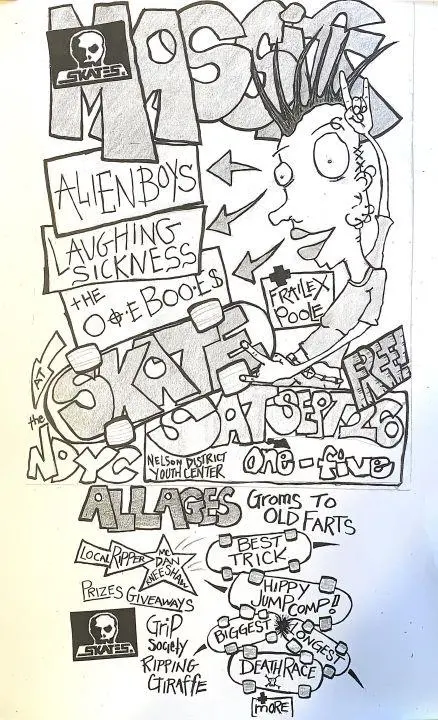 SKATES
MASSIVE
ALIEN BOYS
LAUGHING
SICKNESS
the
O•Φ•E BOO•E$
+
FRALEX
POOLE
SKATE
FREE!
AT
the
NDYC
SAT SEPT 26
NELSON DISTRICT
YOUTH CENTER
one - five
ALL AGES
GROMS TO
OLD FARTS
LOCAL RIPPER
MC
DAN
KNEESHAW
PRIZES GIVEAWAYS
BEST
TRICK
HIPPY
JUMP COMP!!
BIGGEST
LONGEST
DEATH RACE
+
MORE
SKATES
GRIP
Society
RIPPING
GIRAFFE